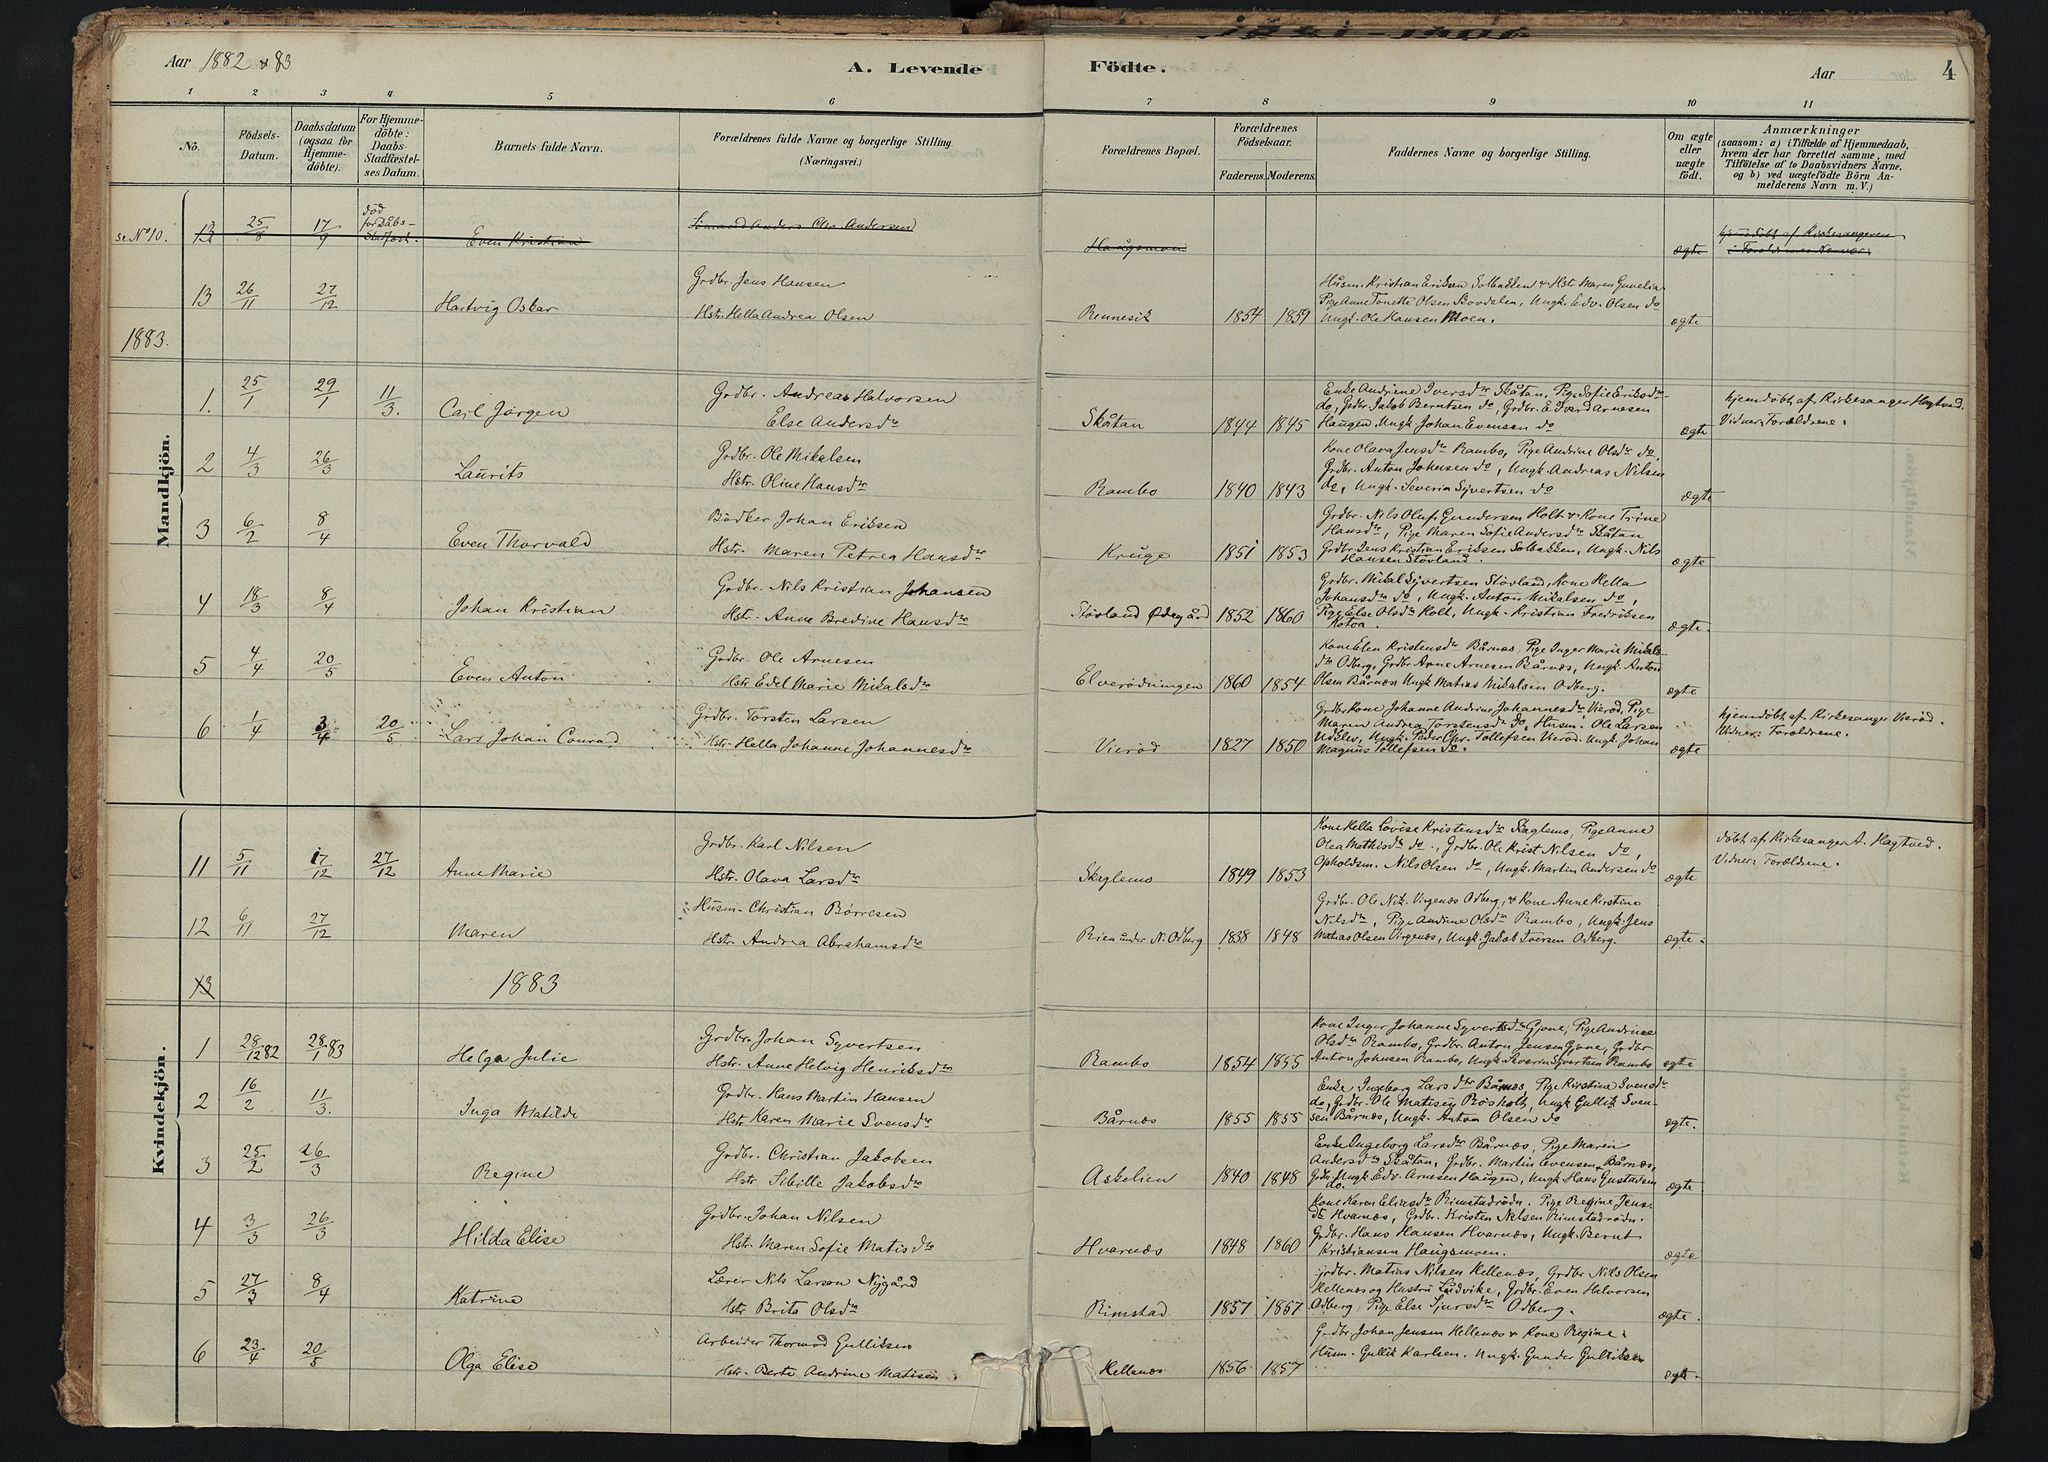 Aar 1882 & 83
A. Levende
Födte.
Aar
4
1 2 3 4 5 6 7 8 9 10 11
No.
Födsels-
Datum.
Daabsdatum
(ogsaa for
Hjemme-
döbte).
For Hjemme-
döbte:
Daabs-
Stadfæstel-
ses Datum.
Barnets fulde Navn.
Forældrenes fulde Navne og borgerlige Stilling.
(Næringsvei.)
Forældrenes Bopæl.
Forældrenes
Födselsaar.
Faderens. Moderens.
Faddernes Navne og borgerlige Stilling.
Om ægte
eller
uægte
födt.
Anmærkninger
(saasom: a) i Tilfælde af Hjemmedaab,
hvem der har forrettet samme, med
Tilföielse af to Daabsvidners Navne,
og b) ved uægtefödte Börn An-
melderens Navn m. V.)
Mandkjön.
se No 10. 12 25/8 17/9 död
for Dåbs-
Stadfæst.
Even Kristian
Sömand Anders Chr. Andersen
Haugsmoen
ægte
hjemedöbt af Kirkesangeren
i Forældrenes Nærvær.
13 26/11 27/12 Hartvig Oskar
Grdbr. Jens Hansen
Hstr. Hella Andrea Olsen
Rennesik 1854 1859
Husm. Kristian Eriksen Solbakken & Hstr. Maren Gunelia
Pige Anne Tonette Olsen Skovdalen, Ungk. Edv. Olsen do
Ungk. Ole Hansen Moen.
ægte
1883.
1. 25/1 29/1 11/3. Carl Jörgen
Grdbr. Andreas Halvorsen
Else Andersdr
Skåtan 1844 1845
Enke Andrine Iversdr Skåtan, Pige Sofie Eriksdr
do, Grdbr Jakob Berntsen do, Grdbr. Edvard Arnesen
Haugen Ungk. Johan Evensen do
ægte
hjemdöbt af Kirkesanger Hagtved.
Vidner: Forældrene.
2 4/3 26/3 Laurits
Grdbr. Ole Mikelsen
Hstr. Oline Hansdr
Rambo 1840 1843
Kone Olava Jensdr Rambo, Pige Andrine Olsdr do.
Grdbr. Anton Johnsen do, Ungk. Andreas Nilsen
do, Ungk. Severin Syvertsen do
ægte
3 6/2 8/4 Even Thorvald
Bödker Johan Eriksen
Hstr. Maren Petrea Hansdr
Kruge 1851 1853
Grdbr. Nils Oluf Gundersen Holt & Kone Trine
Hansdr, Pige Maren Sofie Andersdr Skåtan
Grdbr. Jens Kristian Eriksen Solbakken, Ungk. Nils
Hansen Stövland.
ægte
4 18/3 8/4 Johan Kristian
Grdbr. Nils Kristian Johansen
Hstr. Anne Bredine Hansdr
Stövland Ödegård 1852 1860
Grdbr. Mikal Syvertsen Stövland, Kone Hella
Johansdr do, Ungk. Anton Mikalsen do,
Pige Else Olsdr Holt, Ungk. Kristian Fredriksen
Kotoa.
ægte.
5 4/4 20/5 Even Anton
Grdbr. Ole Arnesen
Hstr Edel Marie Mikalsdr
Elverödningen 1860 1854
Kone Elen Kristensdr Bårnæs, Pige Inger Marie Mikals-
dr Odberg, Grdbr Arne Arnesen Bårnæs, Ungk. Anton
Olsen Bårnæs Ungk Matias Mikalsen Odberg.
ægte
6 1/4 3/4 20/5 Lars Johan Conrad
Grdbr. Torsten Larsen
Hstr. Hella Johanne Johannesdr
Vieröd 1827 1850
Grdbrkone Johanne Andrine Johannesdr Vieröd, Pige
Maren Andrea Torstensdr do, Husm. Ole Larsen
Udklev, Ungk. Peder Chr. Tollefsen Vieröd. Ungk. Johan
Magnus Tollefsen do.
ægte
hjemdöbt af Kirkesanger Vieröd.
Vidner: Forældrene.
Kvindekjön.
11 5/11 17/12 27/12 Anne Marie
Grdbr. Karl Nilsen
Hstr. Olava Larsdr
Skaglemo 1849 1853
Kone Hella Lovise Kristensdr Skaglemo, Pige Anne
Olea Mathisdr do., Grdbr. Ole Krist Nilsen do,
Opholdsm. Nils Olsen do, Ungk. Martin Andersen do
ægte
döbt af Kirkesanger A. Hagtved.
Vidner: Forældrene.
12 6/11 27/12 Maren
Husm. Christian Börresen
Hstr. Andrea Abrahamsdr
Rien under N. Odberg 1838 1848
Grdbr. Ole Nik. Virgenæs Odberg, & Kone Anne Kirstine
Nilsdr, Pige Andrine Olsdr Rambo, Ungk. Jens
Matias Olsen Virgenæs, Ungk. Jakob Iversen Odberg.
ægte.
13
1883
1 28/12 82 28/1 83 Helga Julie
Grdbr. Johan Syvertsen
Hstr. Anne Helvig Henriksdr
Rambo 1854 1855
Kone Inger Johanne Syvertsdr Gjone, Pige Andrine
Olsdr Rambo, Grdbr. Anton Jensen Gjone, Grdbr
Anton Johnsen Rambo, Ungk. Severin Syvertsen Rambo
ægte
2 16/2 11/3. Inga Matilde
Grdbr. Hans Martin Hansen
Hstr Karen Marie Svensdr
Bårnæs 1855 1855
Enke Ingeborg Larsdr Bårnæs, Pige Kirstine Svensdr
do, Grdbr. Ole Matisen Rösholt, Ungk Gullik Sven-
sen Bårnæs, Ungk. Anton Olsen do
ægte.
3 25/2 26/3 Regine
Grdbr. Christian Jakobsen
Hstr. Sibille Jakobsdr
Askelien 1840 1848
Enke Ingeborg Larsdr Bårnæs, Pige Maren
Andersdr Skåtan, Grdbr. Martin Evensen Bårnæs,
Ungk Edv. Arnesen Haugen, Ungk Hans Gustavsen
do.
ægte
4 3/3 26/3 Hilda Elise
Grdbr. Johan Nilsen
Hstr. Maren Sofie Matisdr
Hvarnæs 1848 1860
Kone Karen Eliasdr Rimstadrödn. Pige Regine Jens-
dr Hvarnæs, Grdbr. Kristen Nilsen Rimstadrödn.
Grdbr. Hans Hansen Hvarnæs, Ungk. Bernt
Kristiansen Haugsmoen.
ægte
5 27/3 8/4 Katrine
Lærer Nils Larsen Nygård
Hstr Brita Olsdr
Rimstad 1857 1857
Grdbr. Matias Nilsen Hellenæs, Grdbr Nils Olsen
Hellenæs og Hustru Ludvike, Grdbr. Even Halvorsen
Odberg, Pige Else Sjursdr Odberg.
ægte.
6 23/4 20/5 Olga Elise
Arbeider Thormod Gulliksen
Hstr. Berte Andrine Matisen
Hellenæs 1856 1857
Grdbr Johan Jensen Hellenæs & Kone Regine.
Husm. Gullik Karlsen. Ungk. Gunder Gulliksen
ægte.